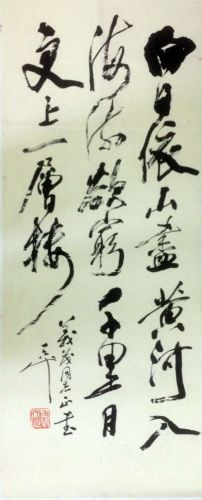 白日依山盡黃河入
海流欲窮千里目
更上一層樓
義茂同志正書